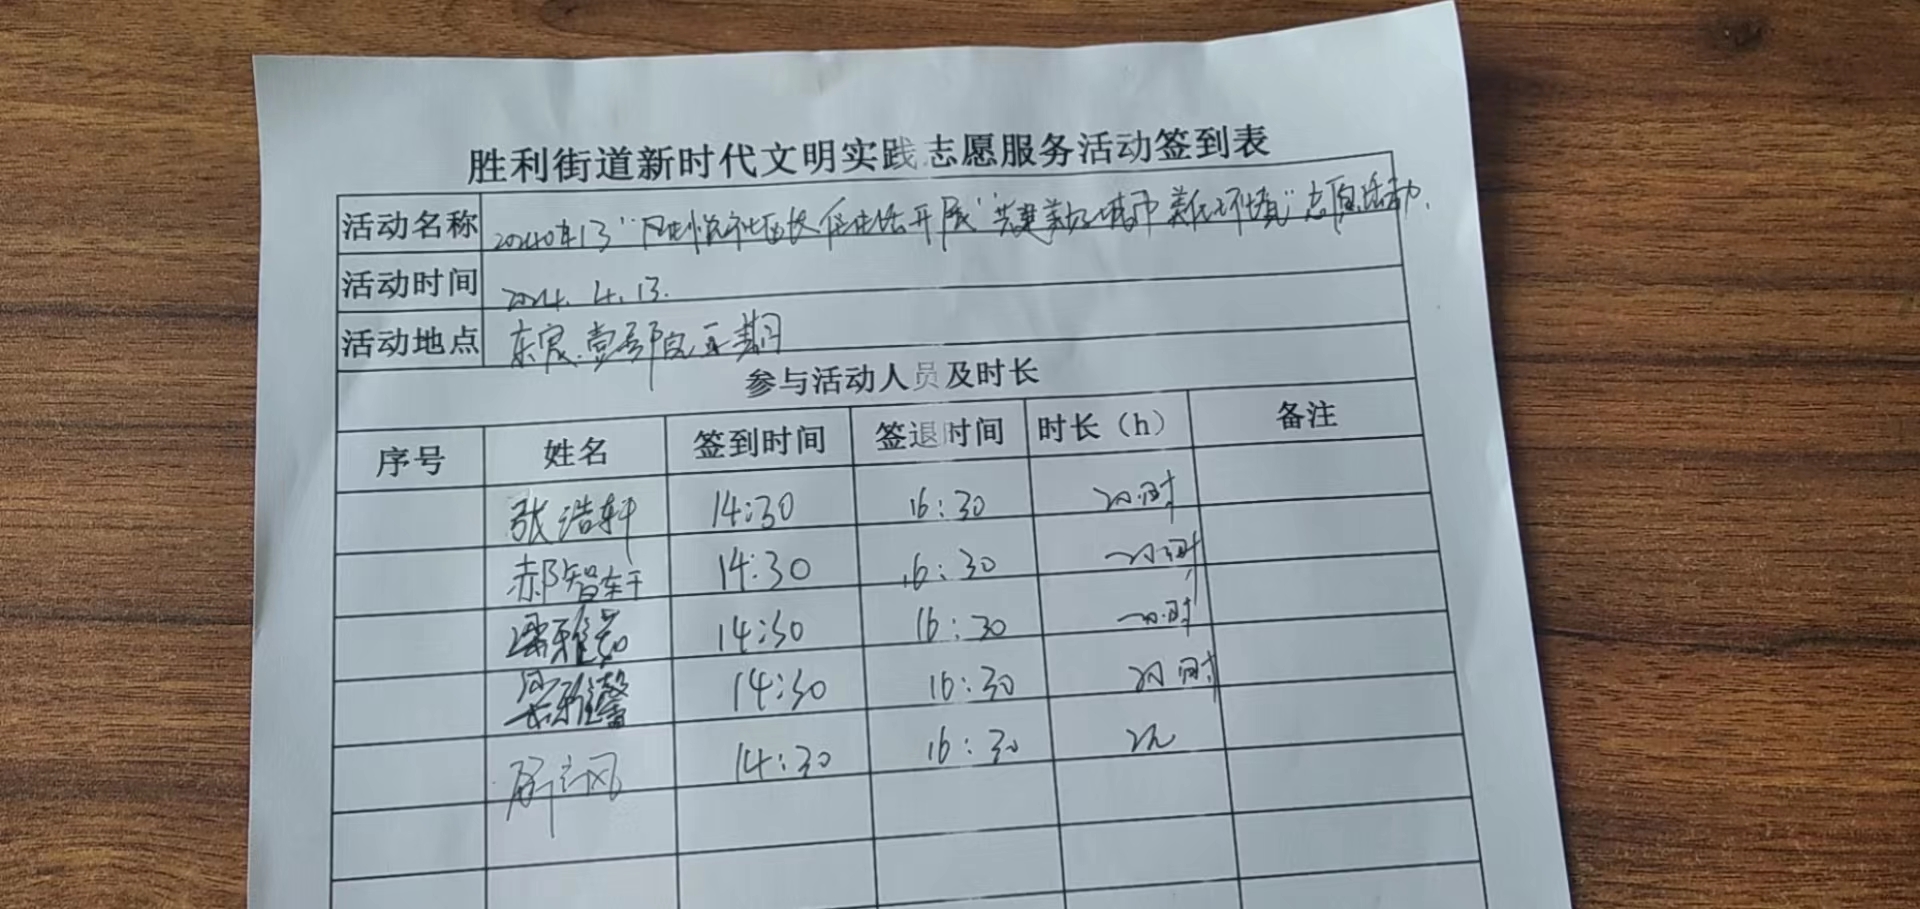 胜利街道新时代文明实践志愿服务活动签到表
活动名称 开展"共建美好城市 志愿活动.
活动时间 2024. 4. 13.
活动地点 东宸.壹号院 期
参与活动人员及时长
序号 姓名 签到时间 签退时间 时长（h） 备注
张浩轩 14:30 16:30 2小时
郝智轩 14:30 16:30 小时
雅茹 14:30 16:30 小时
雅馨 14:30 16:30 2小时
14:30 16:30